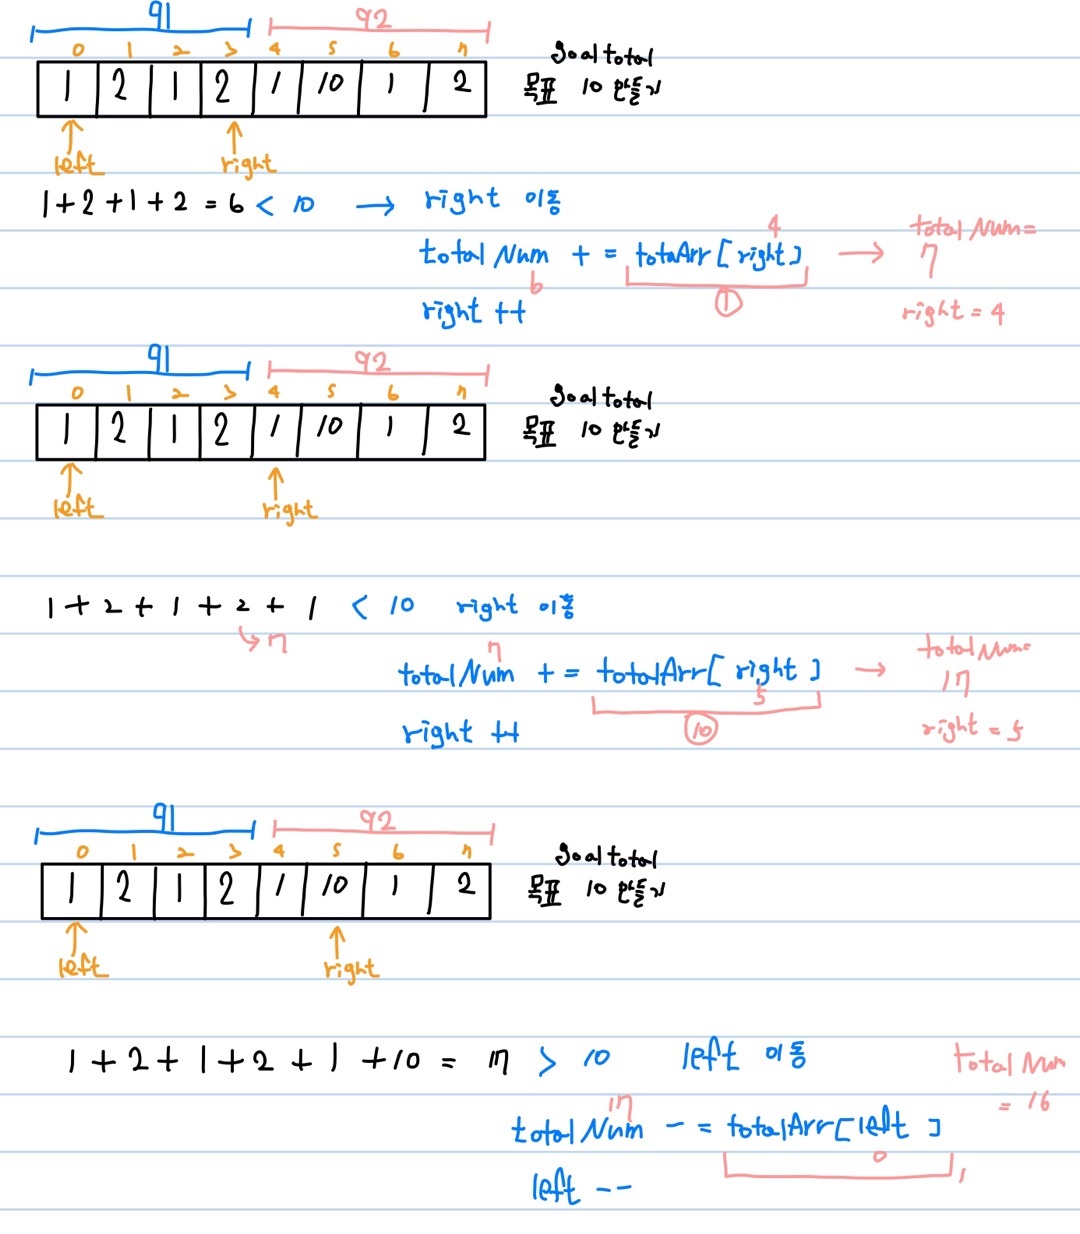 q1 q2
0 1 2 3 4 5 6 7
1 2 1 2 1 10 1 2
goal total
목표 10 만들기
left right
1 + 2 + 1 + 2 = 6 < 10 → right 이동
4
totalNum += totaArr[right] → totalNum = 7
6 ①
right ++ right = 4
q1 q2
0 1 2 3 4 5 6 7
1 2 1 2 1 10 1 2
goal total
목표 10 만들기
left right
1 + 2 + 1 + 2 + 1 < 10 right 이동
↳ 7
7
totalNum += totalArr[right] → totalNum = 17
5
right ++ ⑩ right = 5
q1 q2
0 1 2 3 4 5 6 7
1 2 1 2 1 10 1 2
goal total
목표 10 만들기
left right
1 + 2 + 1 + 2 + 1 + 10 = 17 > 10 left 이동 total Num = 16
17
totalNum -= totalArr[left]
0 1
left --